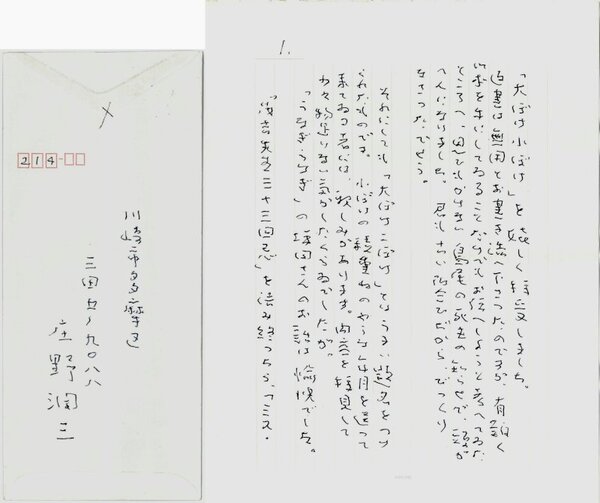 1.
「大ぼけ小ぼけ」を嬉しく拝受しました。
返書は無用とお書き添へ下さつたのですが、有難く
御本を手にしてゐることだけでもお伝へしようと考へてゐた
ところへ、思ひもかけない島尾の死去の知らせで、話が
へんになりました。君も古い附合ひだから、びつくり
なさつたでせう。
それにしても「大ぼけ小ぼけ」とはうまい題名をつけ
られたものです。小ぼけの積重ねのやうな年月を送つて
来てゐる者には、親しみがあります。内容を拝見して
少々物足りない気がしたくらゐでしたが。
「うなぎうなぎ」の坪田さんのお話は愉快でした。
先生三十三回忌」を読み終つたら、「ミス・
214
川崎市多摩区
三田五ノ九〇八八
庄野潤三